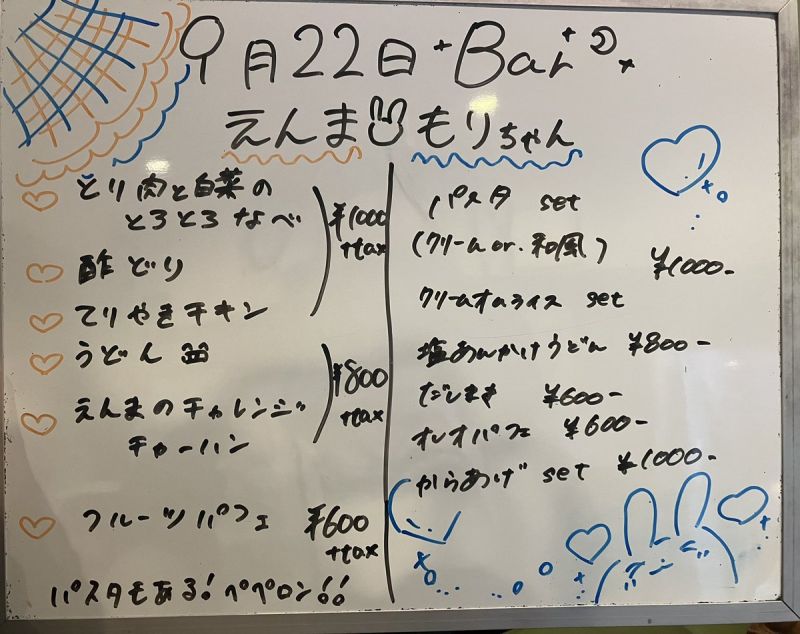 9月22日 Bar
えんま もりちゃん
とり肉と白菜の
とろとろなべ
酢どり
てりやきチキン
¥1000
+tax
うどん
えんまのチャレンジ
チャーハン
¥800
+tax
フルーツパフェ ¥600
+tax
パスタもある!ペペロン!!
パスタ set
(クリーム or. 和風)
クリームオムライス set
¥1000-
塩あんかけうどん ¥800-
だしまき ¥600-
オレオパフェ ¥600-
からあげ set ¥1000-